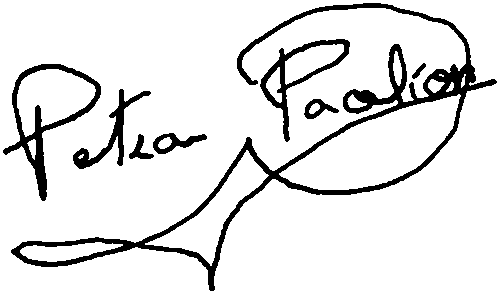 Petra Pacalion